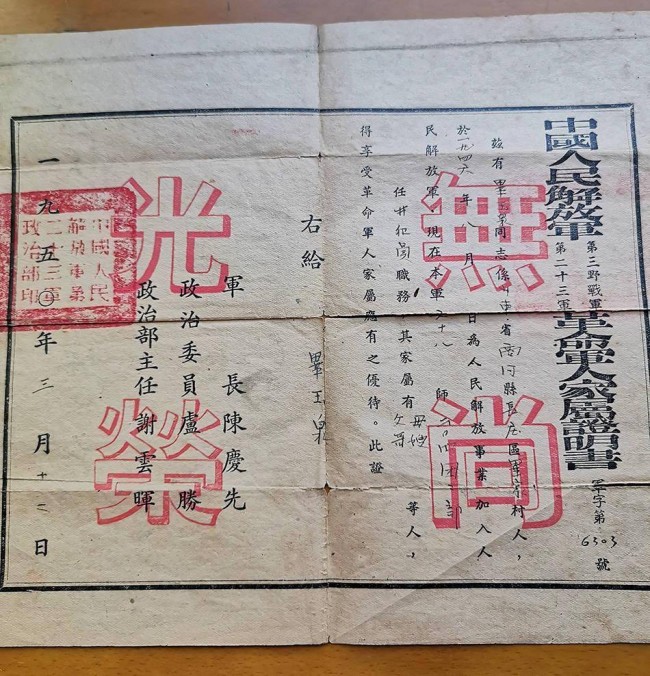 中國人民解放軍 第三野戰軍
第二十三軍 革命軍人家屬證明書
軍字第6303號
茲有畢玉泉同志係山東省商河縣長庄區畢家村人,
於一九四六年八月 日為人民解放事業加入人
民解放軍現在本軍六十八師
任 職務其家屬有
等人,
得享受革命軍人家屬應有之優待。此證
無尚
光榮
右給 畢玉泉
軍長陳慶先
政治委員盧勝
政治部主任謝雲暉
一九五〇年三月十二日
中國人民
解放軍第
二十三軍
政治部印